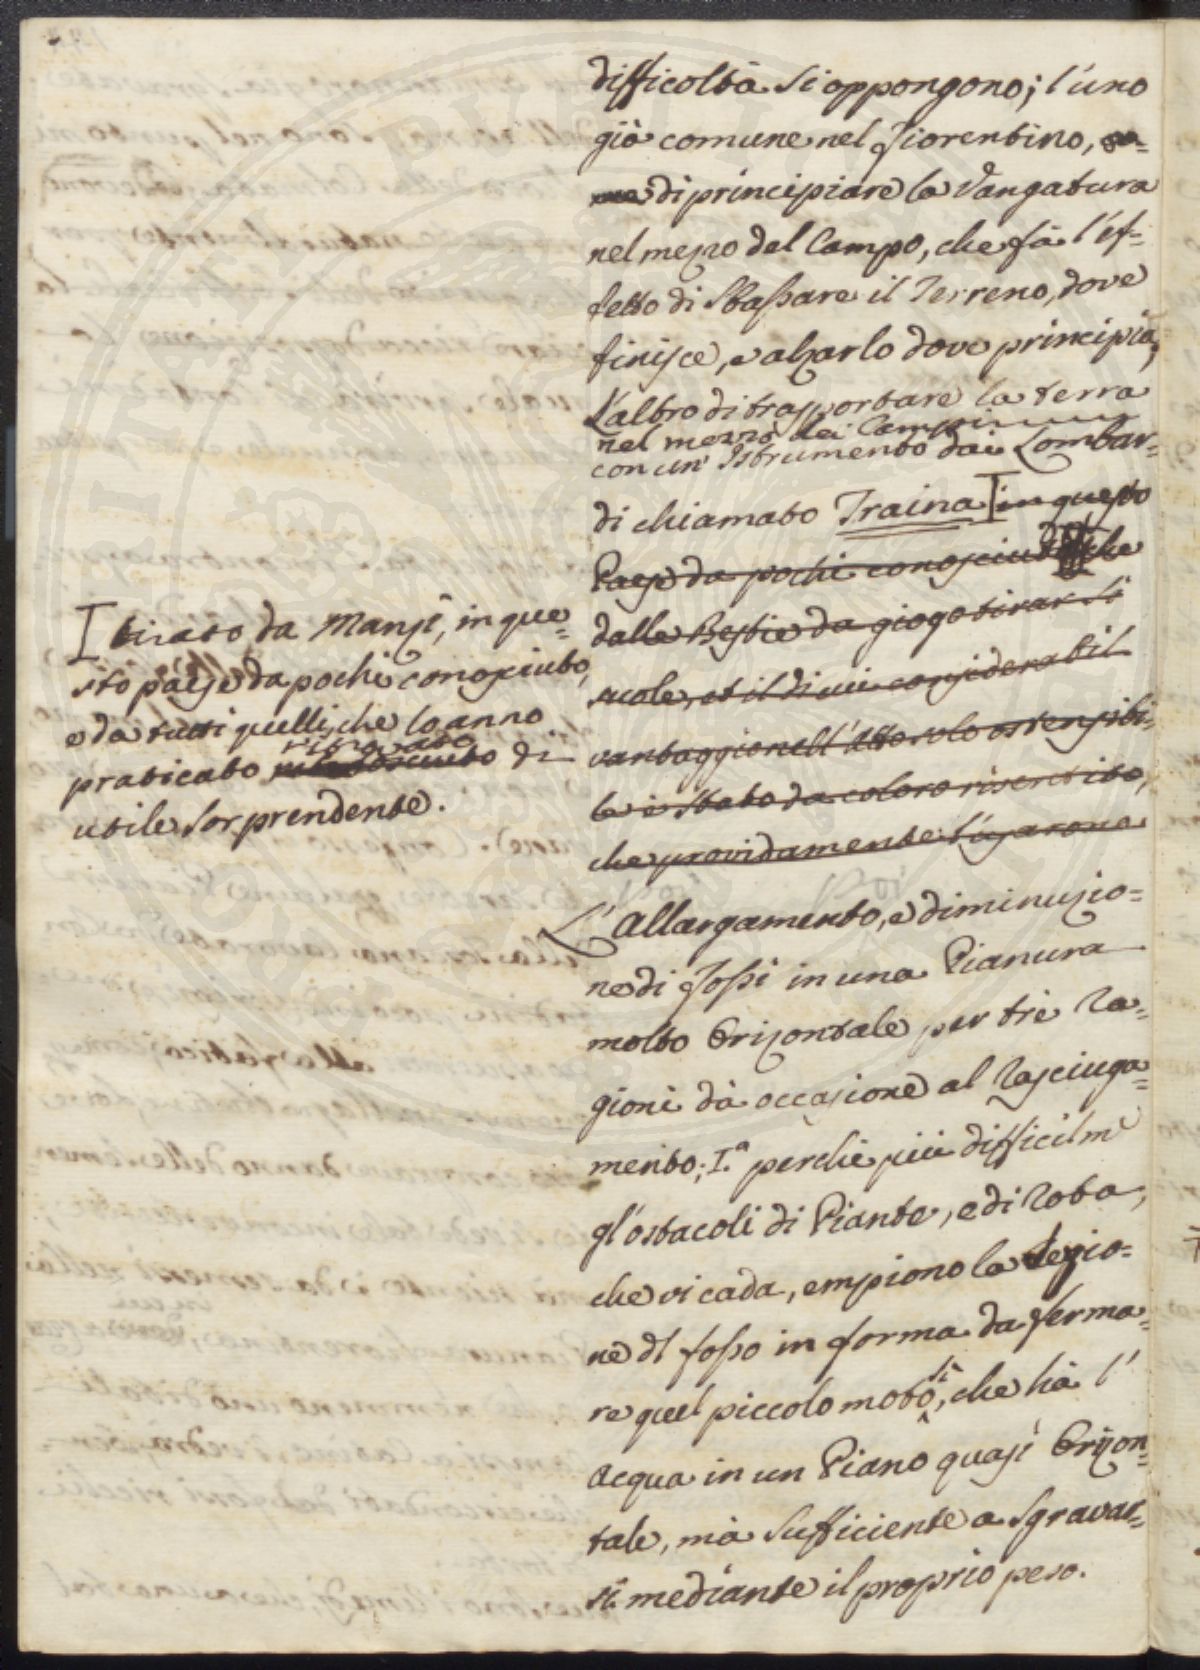 difficoltà si oppongono; l'uno
già comune nel Fiorentino,
di principiare la Vangatura
nel mezzo del Campo, che fà l'ef=
fetto di sbassare il Terreno, dove
finisce, e alzarlo dove principia,
L'altro di trasportare la terra
nel mezzo dei Campi
con un' Istrumento dai Lombar=
di chiamato Traina I in questo
Paese da pochi conosciuto che
dalle Bestie da giogo tirar si
suole, et il di cui considerabil
vantaggio nell' atto solo ostensibi=
le è stato da coloro risentito,
che providamente l'usarono
I tirato da Manzi, in que=
sto paese da pochi conosciuto,
e da tutti quelli, che lo anno
ritrovato
praticato di
utile sorprendente.
L'Allargamento, e diminuzio=
ne di fossi in una Pianura
molto Orizontale per tre ra=
gioni dà occasione al rasciuga=
mento; I.a perche più difficilme
gl'ostacoli di Piante, e di roba,
che vi cada, empiono la sezio=
ne dl fosso in forma da ferma=
re quel piccolo moto sì, che hà l'
acqua in un Piano quasi Orizon=
tale, mà sufficiente a sgravar=
si mediante il proprio peso.